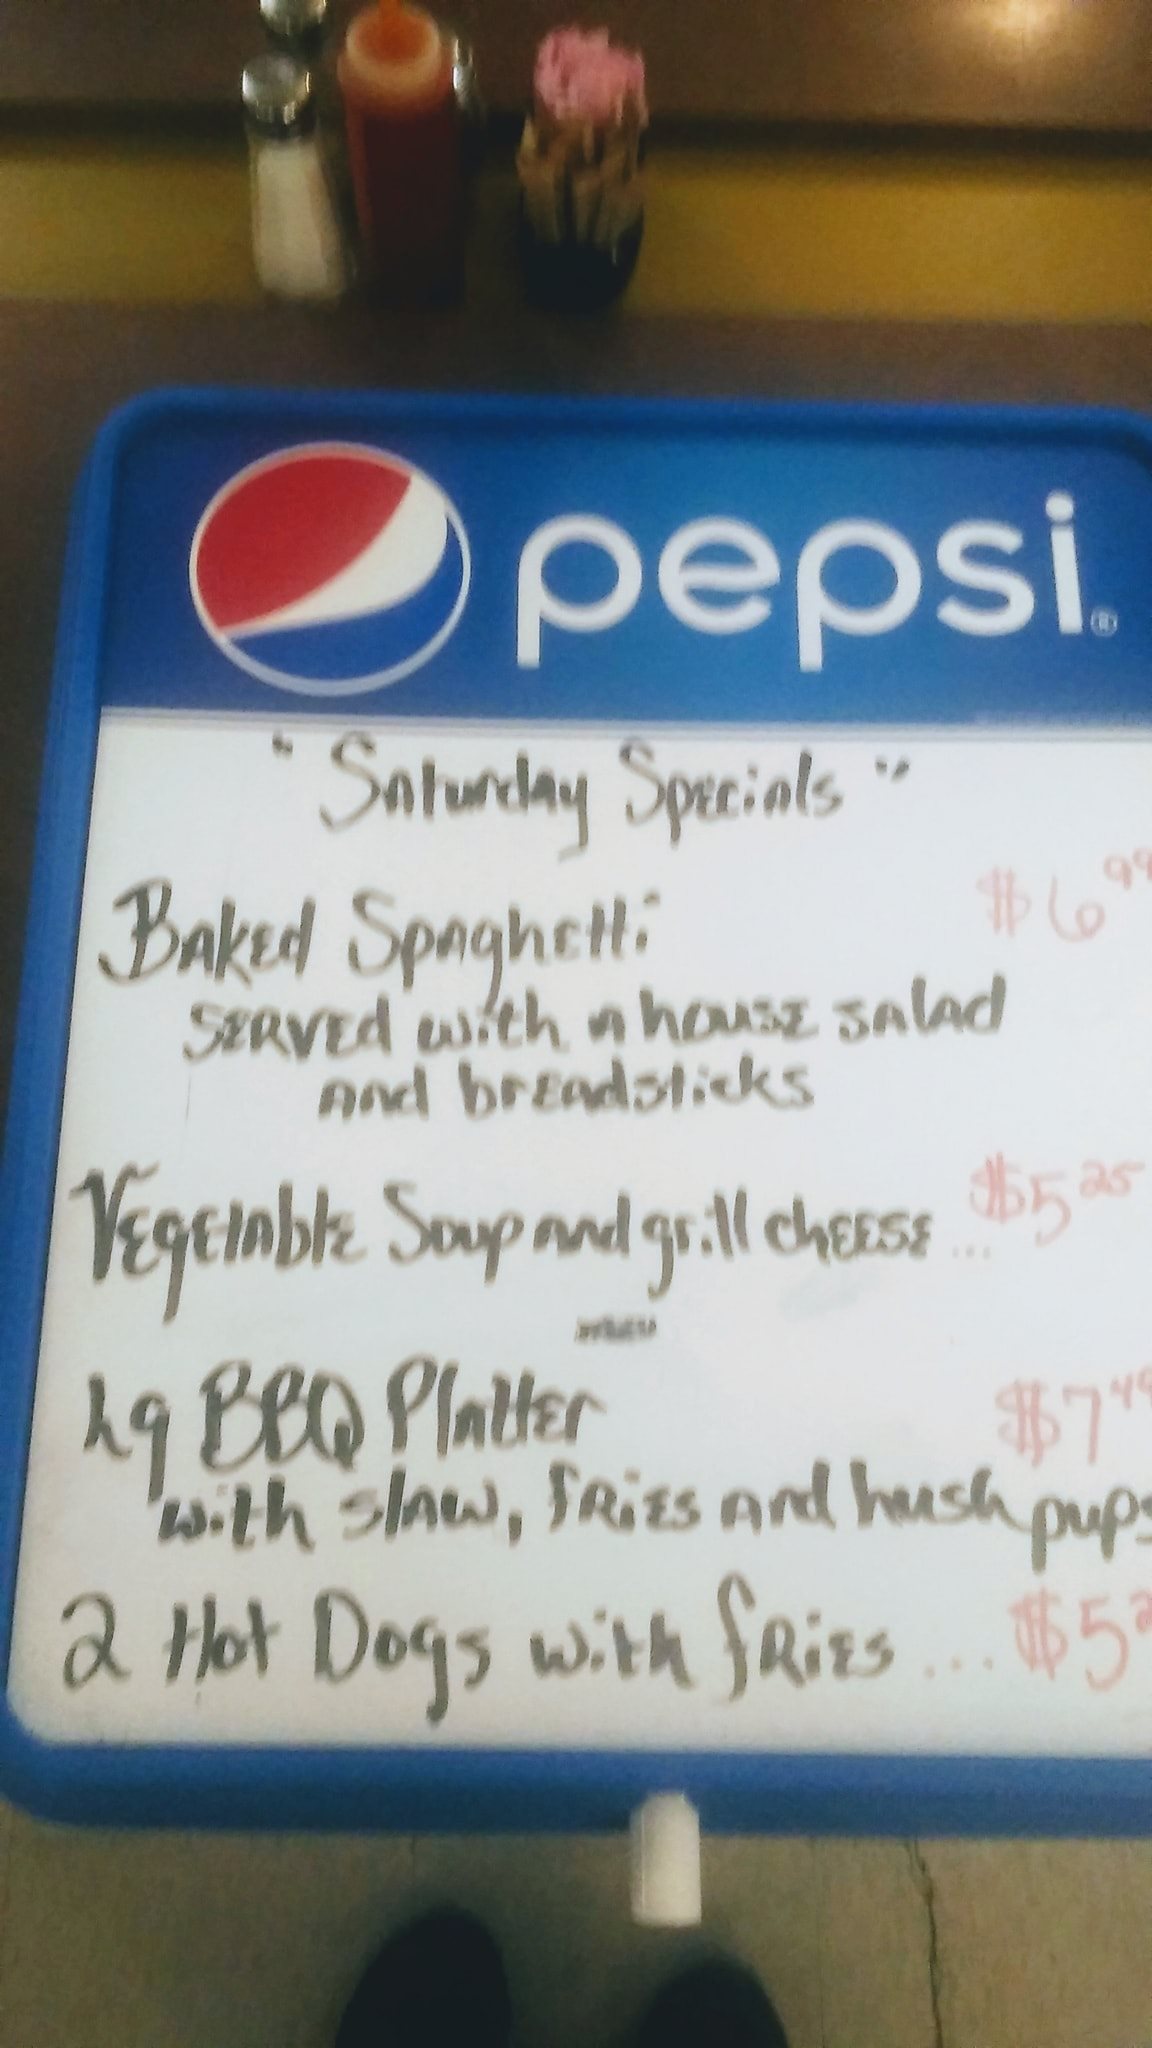 pepsi®
"Saturday Specials"
Baked Spaghetti $6 99
served with a house salad
and breadsticks
Vegetable Soup and grill cheese ... $5 25
Lg BBQ Platter $7 49
with slaw, fries and hush pups
2 Hot Dogs with fries ... $5 2